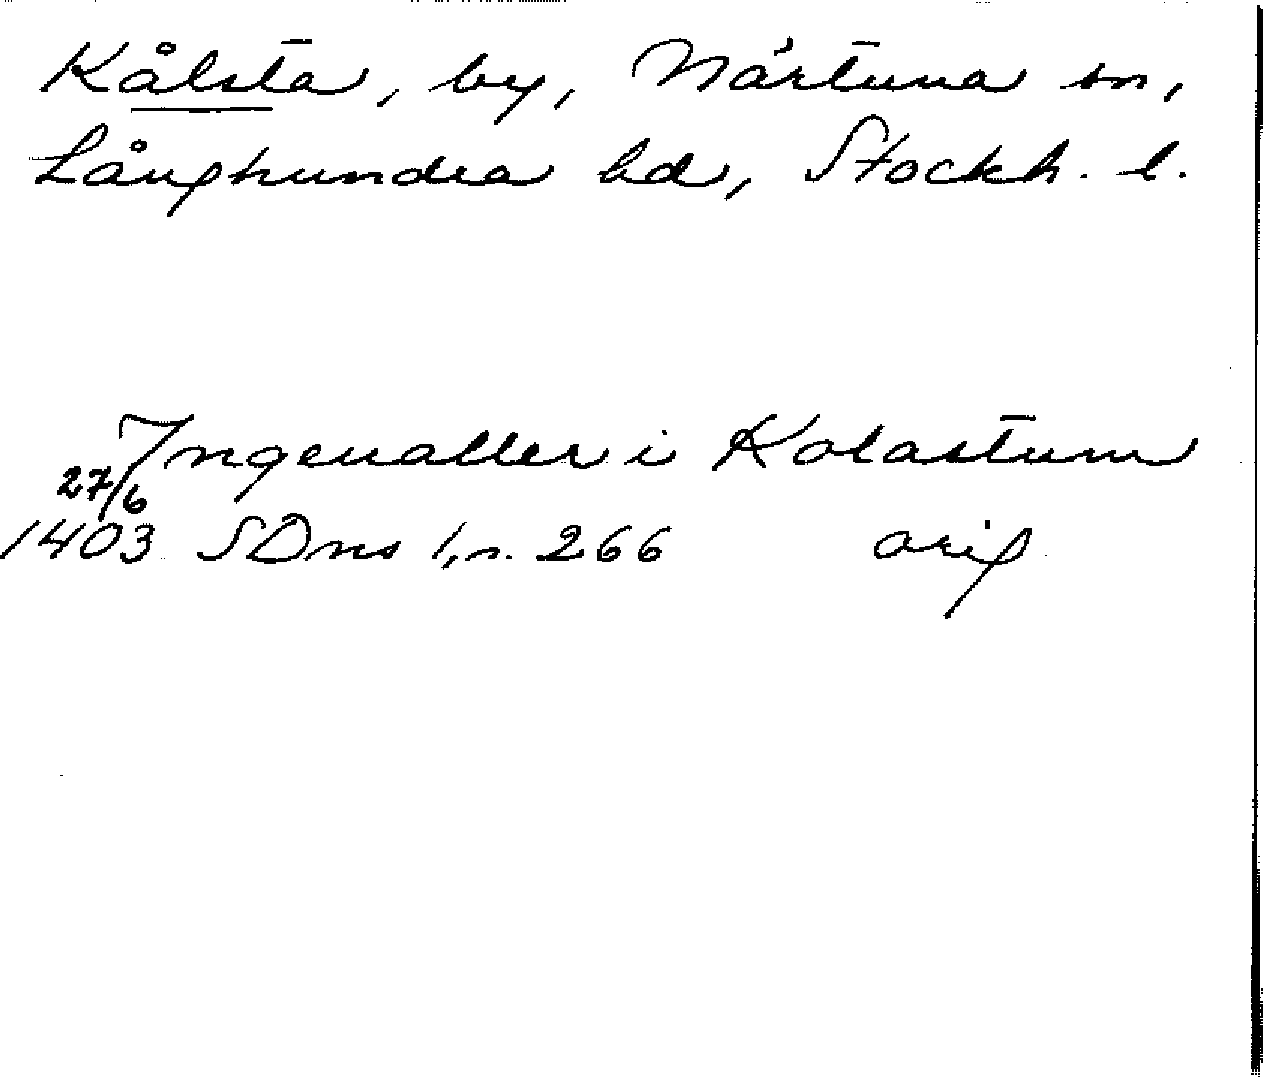 Kålsta, by, Närtuna sn,
Långhundra hd, Stockh. l.
Ingeualler i Kolastum
27/6
1403 SDns 1, n. 266 orig